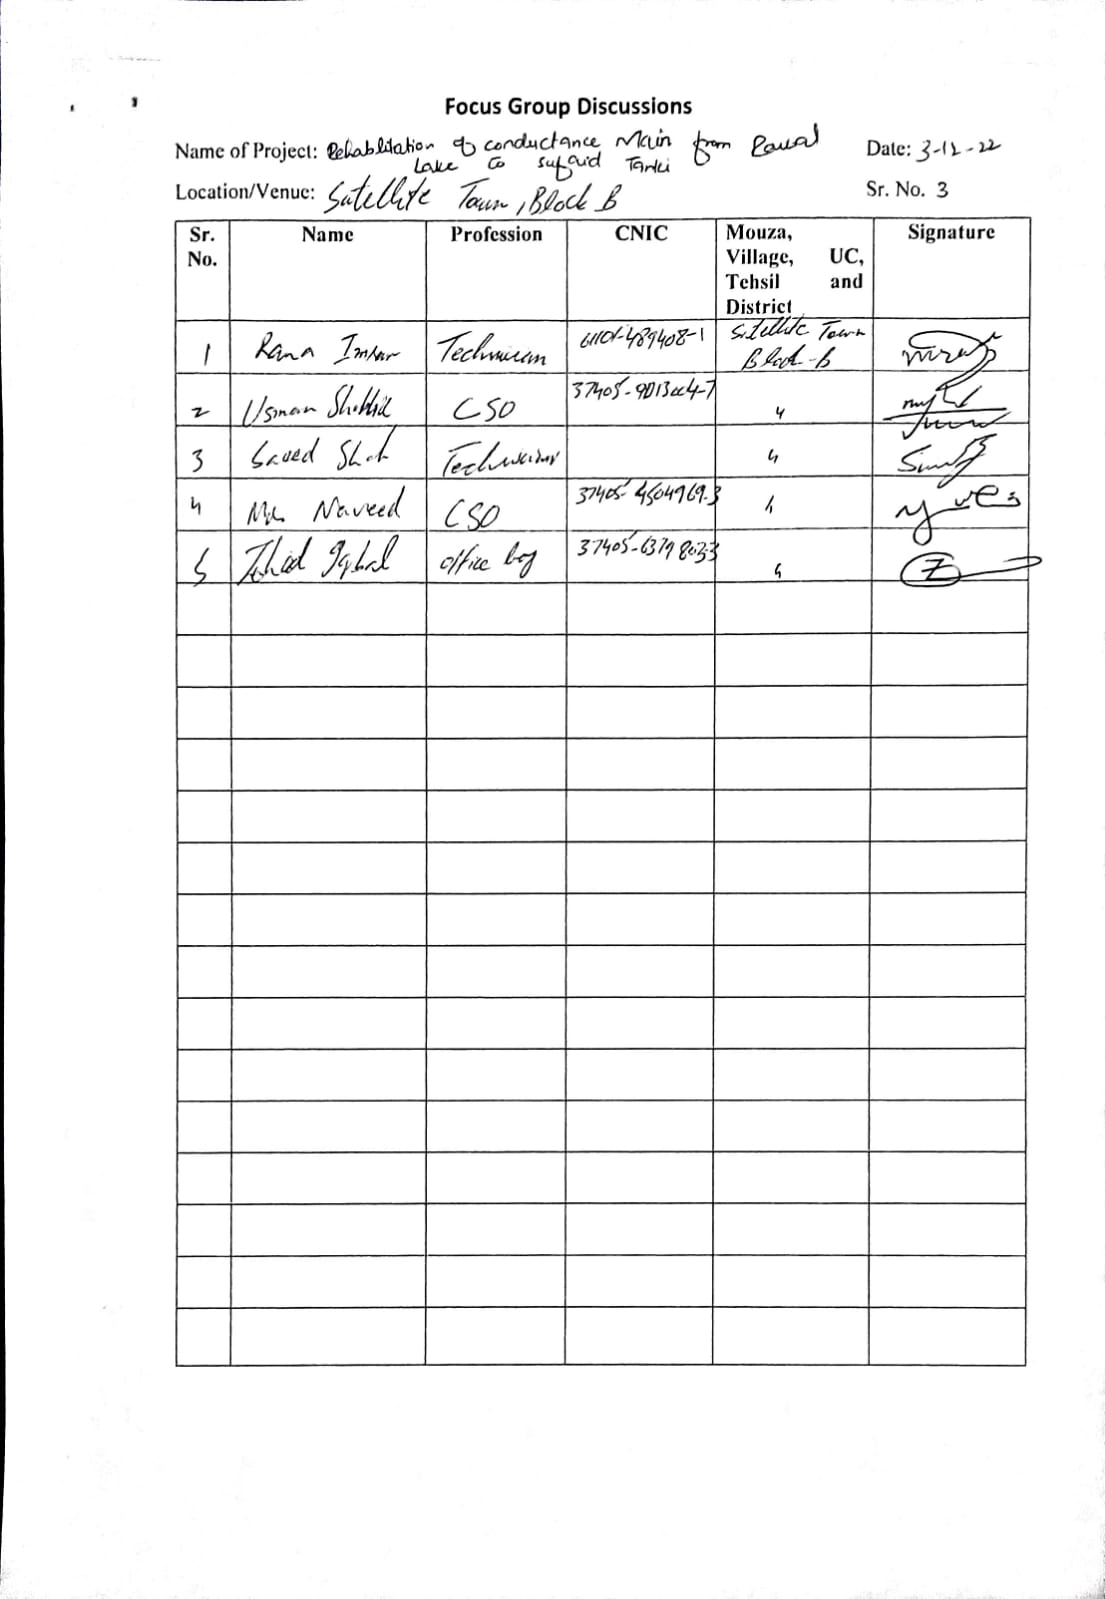 Focus Group Discussions
Name of Project: Rehablitation of conductance Main from Rawal
Lake to sufaid Tanki
Date: 3-12-22
Location/Venue: Satellite Town, Block B
Sr. No. 3
Sr. No. Name Profession CNIC Mouza, Village, UC, Tehsil and District Signature
1 Rana Technician Satellite Town Block-B
2 Usman CSO 〃
3 Saved Shah Technician 〃
4 Naveed CSO 37405-4504969-3 〃
5 Iqbal office boy 37405-6379803-3 〃